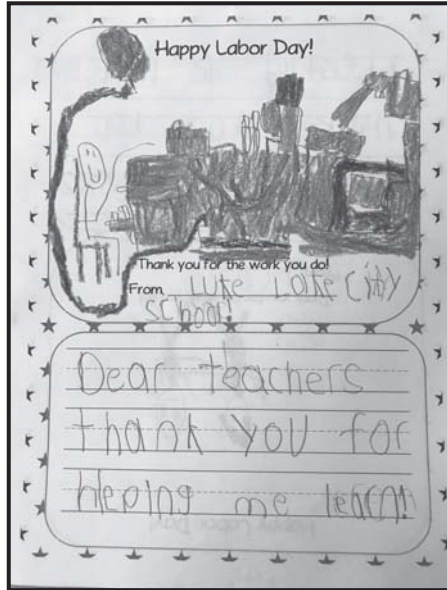 Happy Labor Day!
Thank you for the work you do!
From Luke Lake City
School!
Dear teachers
thank you for
Heping me learn!